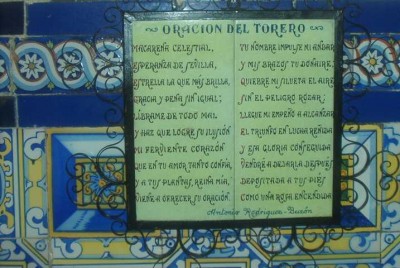 ORACION DEL TORERO
MACARENA CELESTIAL,
ESPERANZA DE SEVILLA,
ESTRELLA LA QUE MÁS BRILLA,
GRACIA Y PENA SIN IGUAL;
LÍBRAME DE TODO MAL
Y HAZ QUE LOGRE SU ILUSIÓN
MI FERVIENTE CORAZÓN
QUE EN TU AMOR TANTO CONFÍA,
Y A TUS PLANTAS, REINA MÍA,
VIENE A OFRECER SU ORACIÓN.
TU NOMBRE IMPULSE MI ANDAR
Y MIS BRAZOS TU DONAIRE;
QUIEBRE MI SILUETA EL AIRE
SIN EL PELIGRO ROZAR;
LLEGUE MI EMPEÑO A ALCANZAR
EL TRIUNFO EN LUCHA REÑIDA
Y ESA GLORIA CONSEGUIDA
VENDRÉ A DEJARLA DESPUÉS
DEPOSITADA A TUS PIES
COMO UNA ROSA ENCENDIDA
Antonio Rodríguez-Buzón